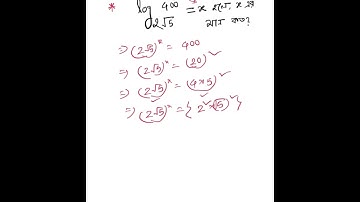 * log 400 = x হলে, x এর
2√5 মান কত?
⇒ (2√5)ˣ = 400
⇒ (2√5)ˣ = (20)
⇒ (2√5)ˣ = (4×5)
⇒ (2√5)ˣ = { 2 × √5 }